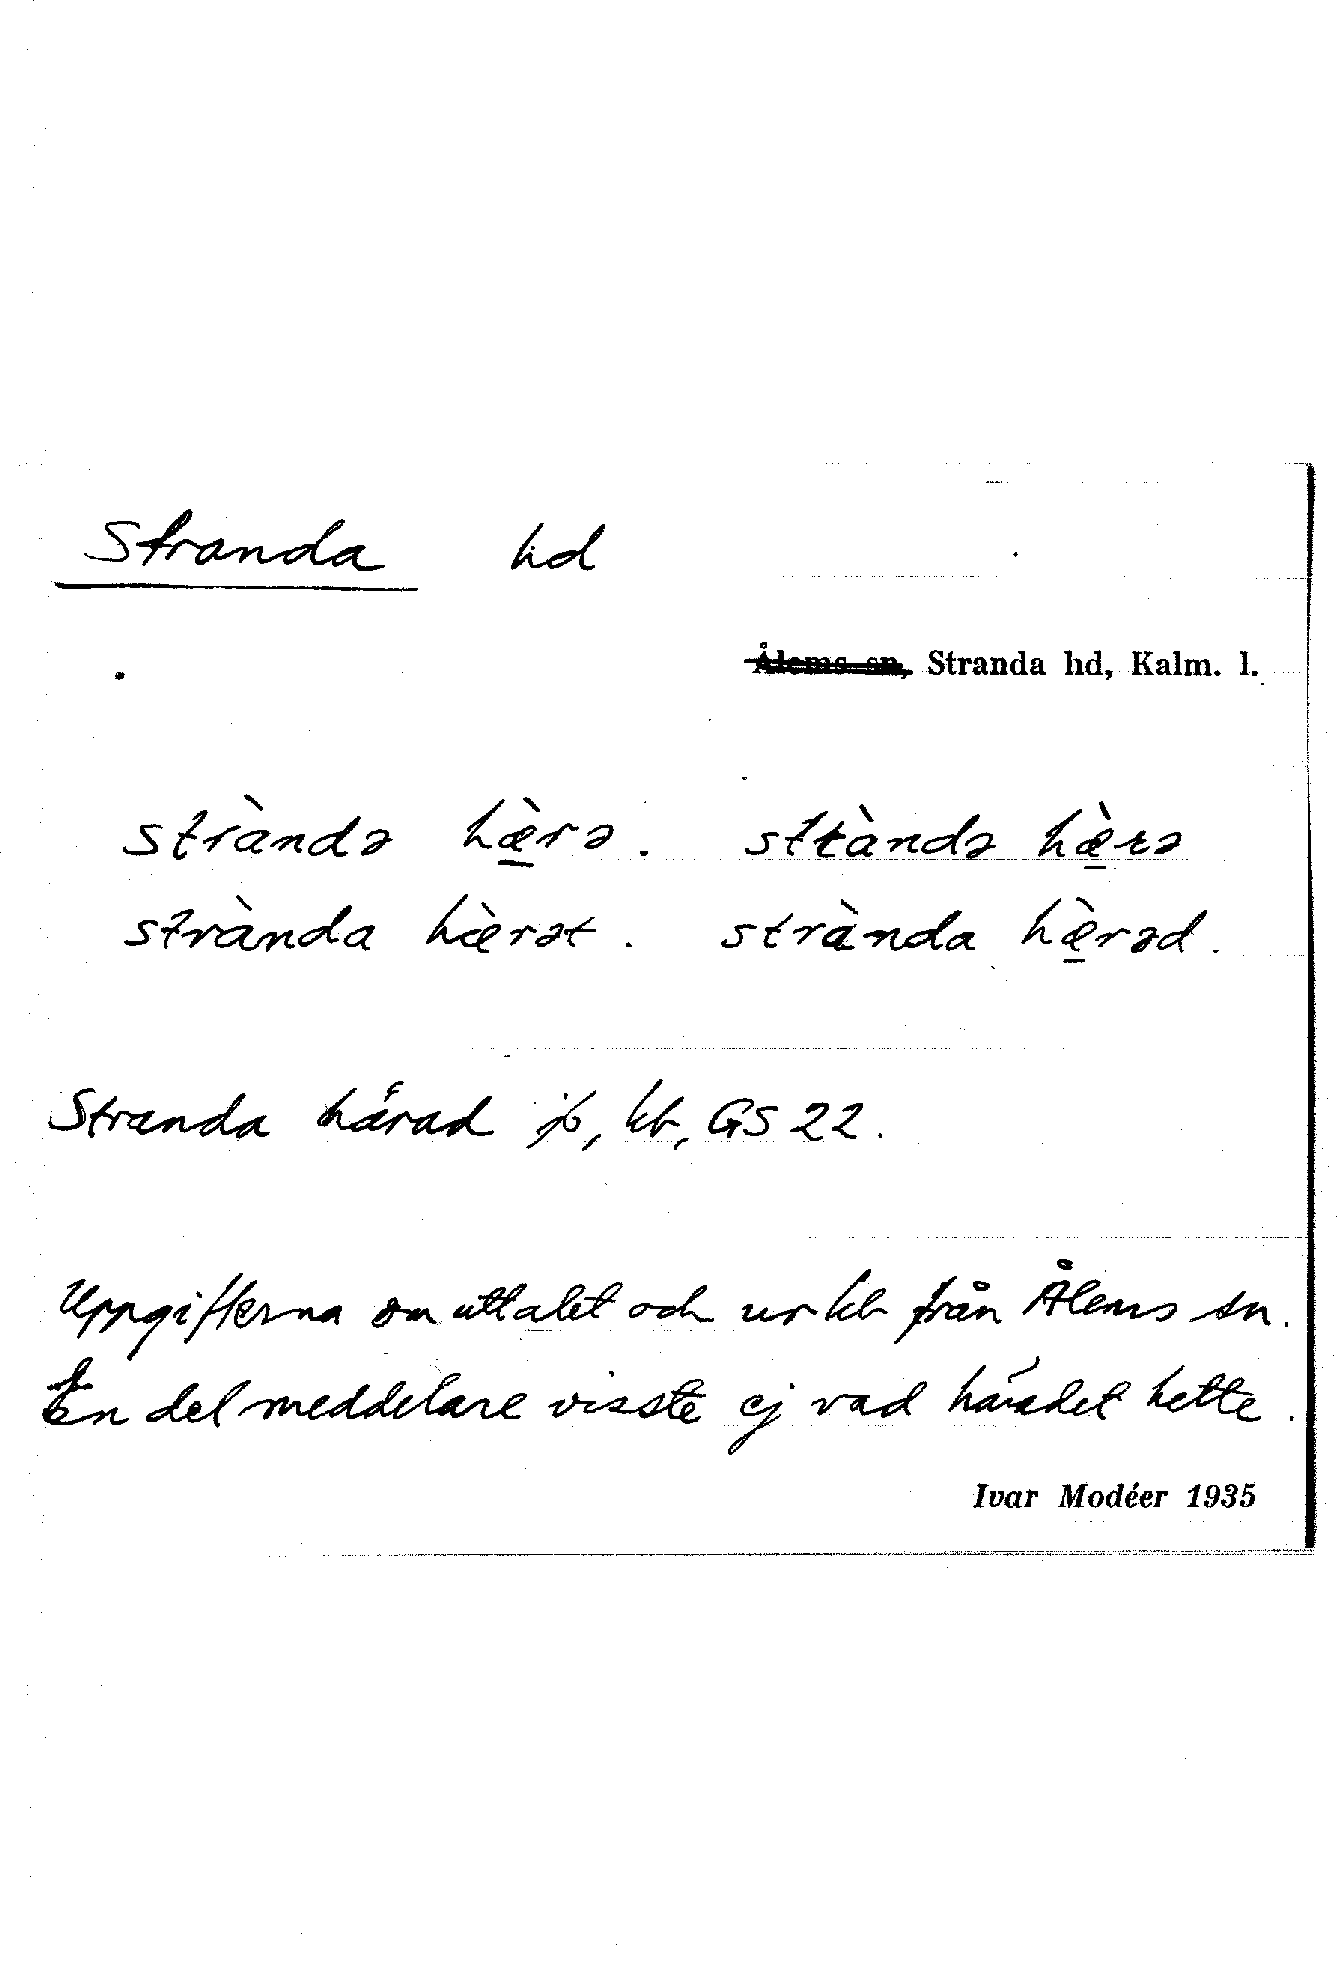 Stranda hd
Ålems sn, Stranda hd, Kalm. l.
stràndə hæ̱̀rə. stràndə hæ̱̀rə
strànda hæ̀rət. strànda hæ̱̀rəd.
Stranda härad jb, kb, GS 22.
Uppgifterna om uttalet och ur kb från Ålems sn.
En del meddelare visste ej vad häradet hette.
Ivar Modéer 1935